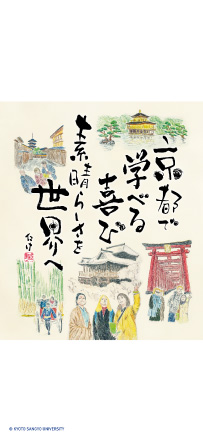 京都で
学べる
喜び
素晴らしさを
世界へ
© KYOTO SANGYO UNIVERSITY